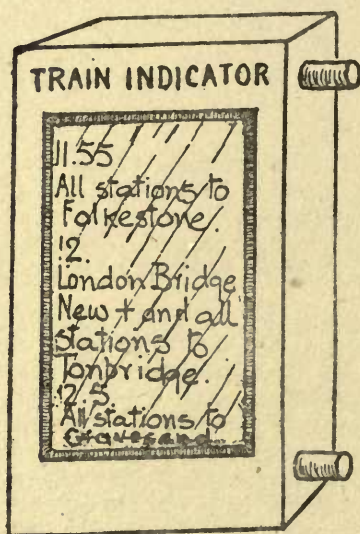 TRAIN INDICATOR
11.55
All stations to
Folkestone.
12.
London Bridge
New + and all
stations to
Tonbridge.
12.5
All stations to
Gravesend